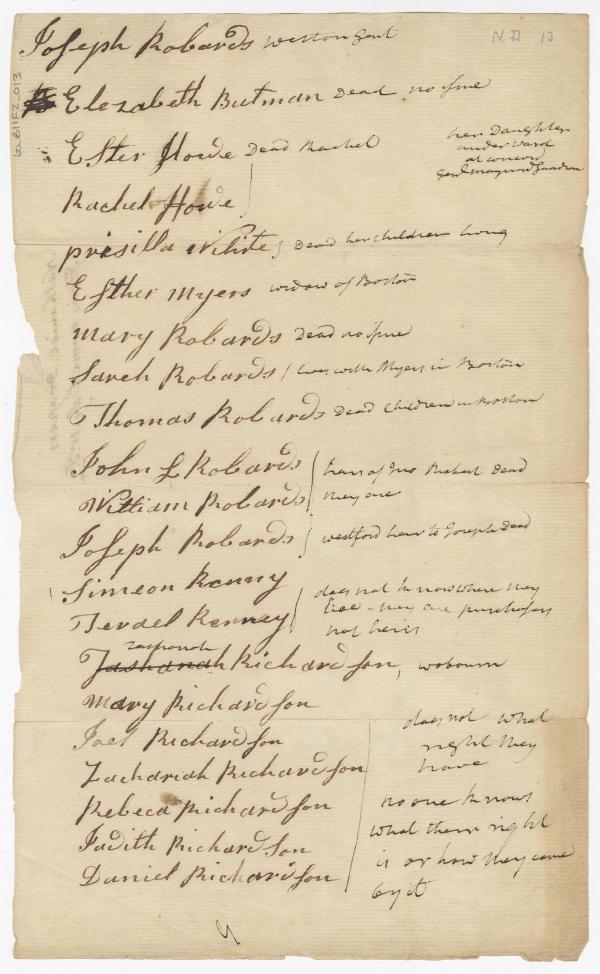 N.D 13
Joseph Robards weston
Elezabeth Butman Dead no issue
Ester Howe Dead Rachel
her Daughter
under ward
at concord
Rachel Howe
prisilla White Dead her children living
Esther Myers widow of Boston
Mary Robards Dead no issue
Sareh Robards lives with Myers in Boston
Thomas Robards Dead Children in Boston
John L Robards heirs of Jno Robert Dead
William Robards they are
Joseph Robards westford heir to Joseph Dead
Simeon Kenny does not know where they
Kenney live - they are purchasers
not heirs
Richardson, wobourn
Mary Richardson
Joel Richardson does not what
right they
Zachariah Richardson have
Rebeca Richardson no one knows
what them right
Judith Richardson is or how they came
Daniel Richardson by it